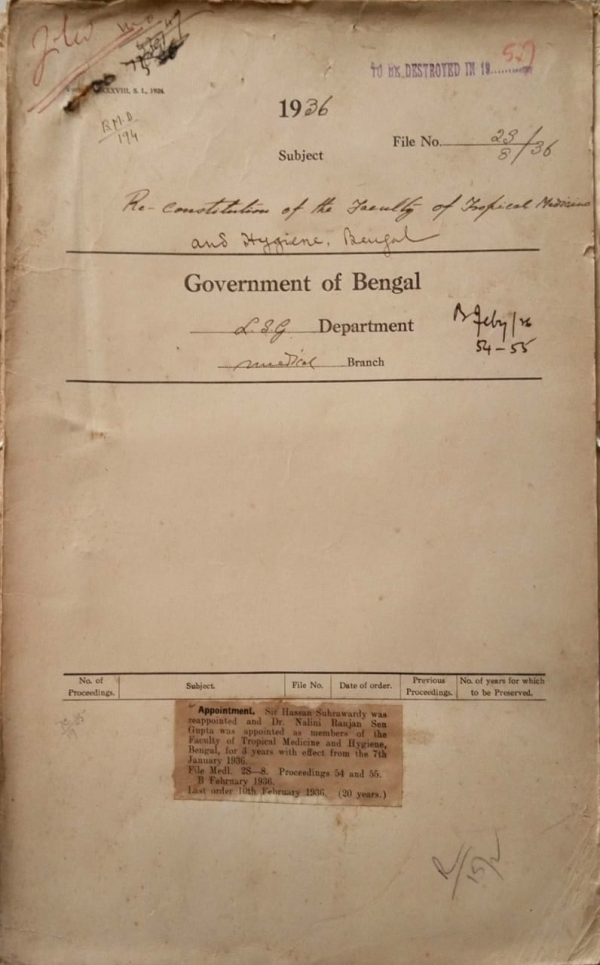 Filed
TO BE DESTROYED IN 19......... 57
XXXVIII, S. L., 1934.
B.M.D.
194
1936
File No. 28/8/36
Subject
Re-constitution of the Faculty of Tropical Medicine
and Hygiene, Bengal
Government of Bengal
L.S.G Department
B Feby/36
54-55
Medical Branch
No. of Proceedings. Subject. File No. Date of order. Previous Proceedings. No. of years for which to be Preserved.
Appointment. Sir Hassan Suhrawardy was
reappointed and Dr. Nalini Ranjan Sen
Gupta was appointed as members of the
Faculty of Tropical Medicine and Hygiene,
Bengal, for 3 years with effect from the 7th
January 1936.
File Medl. 28—8. Proceedings 54 and 55.
B February 1936.
Last order 10th February 1936. (20 years.)